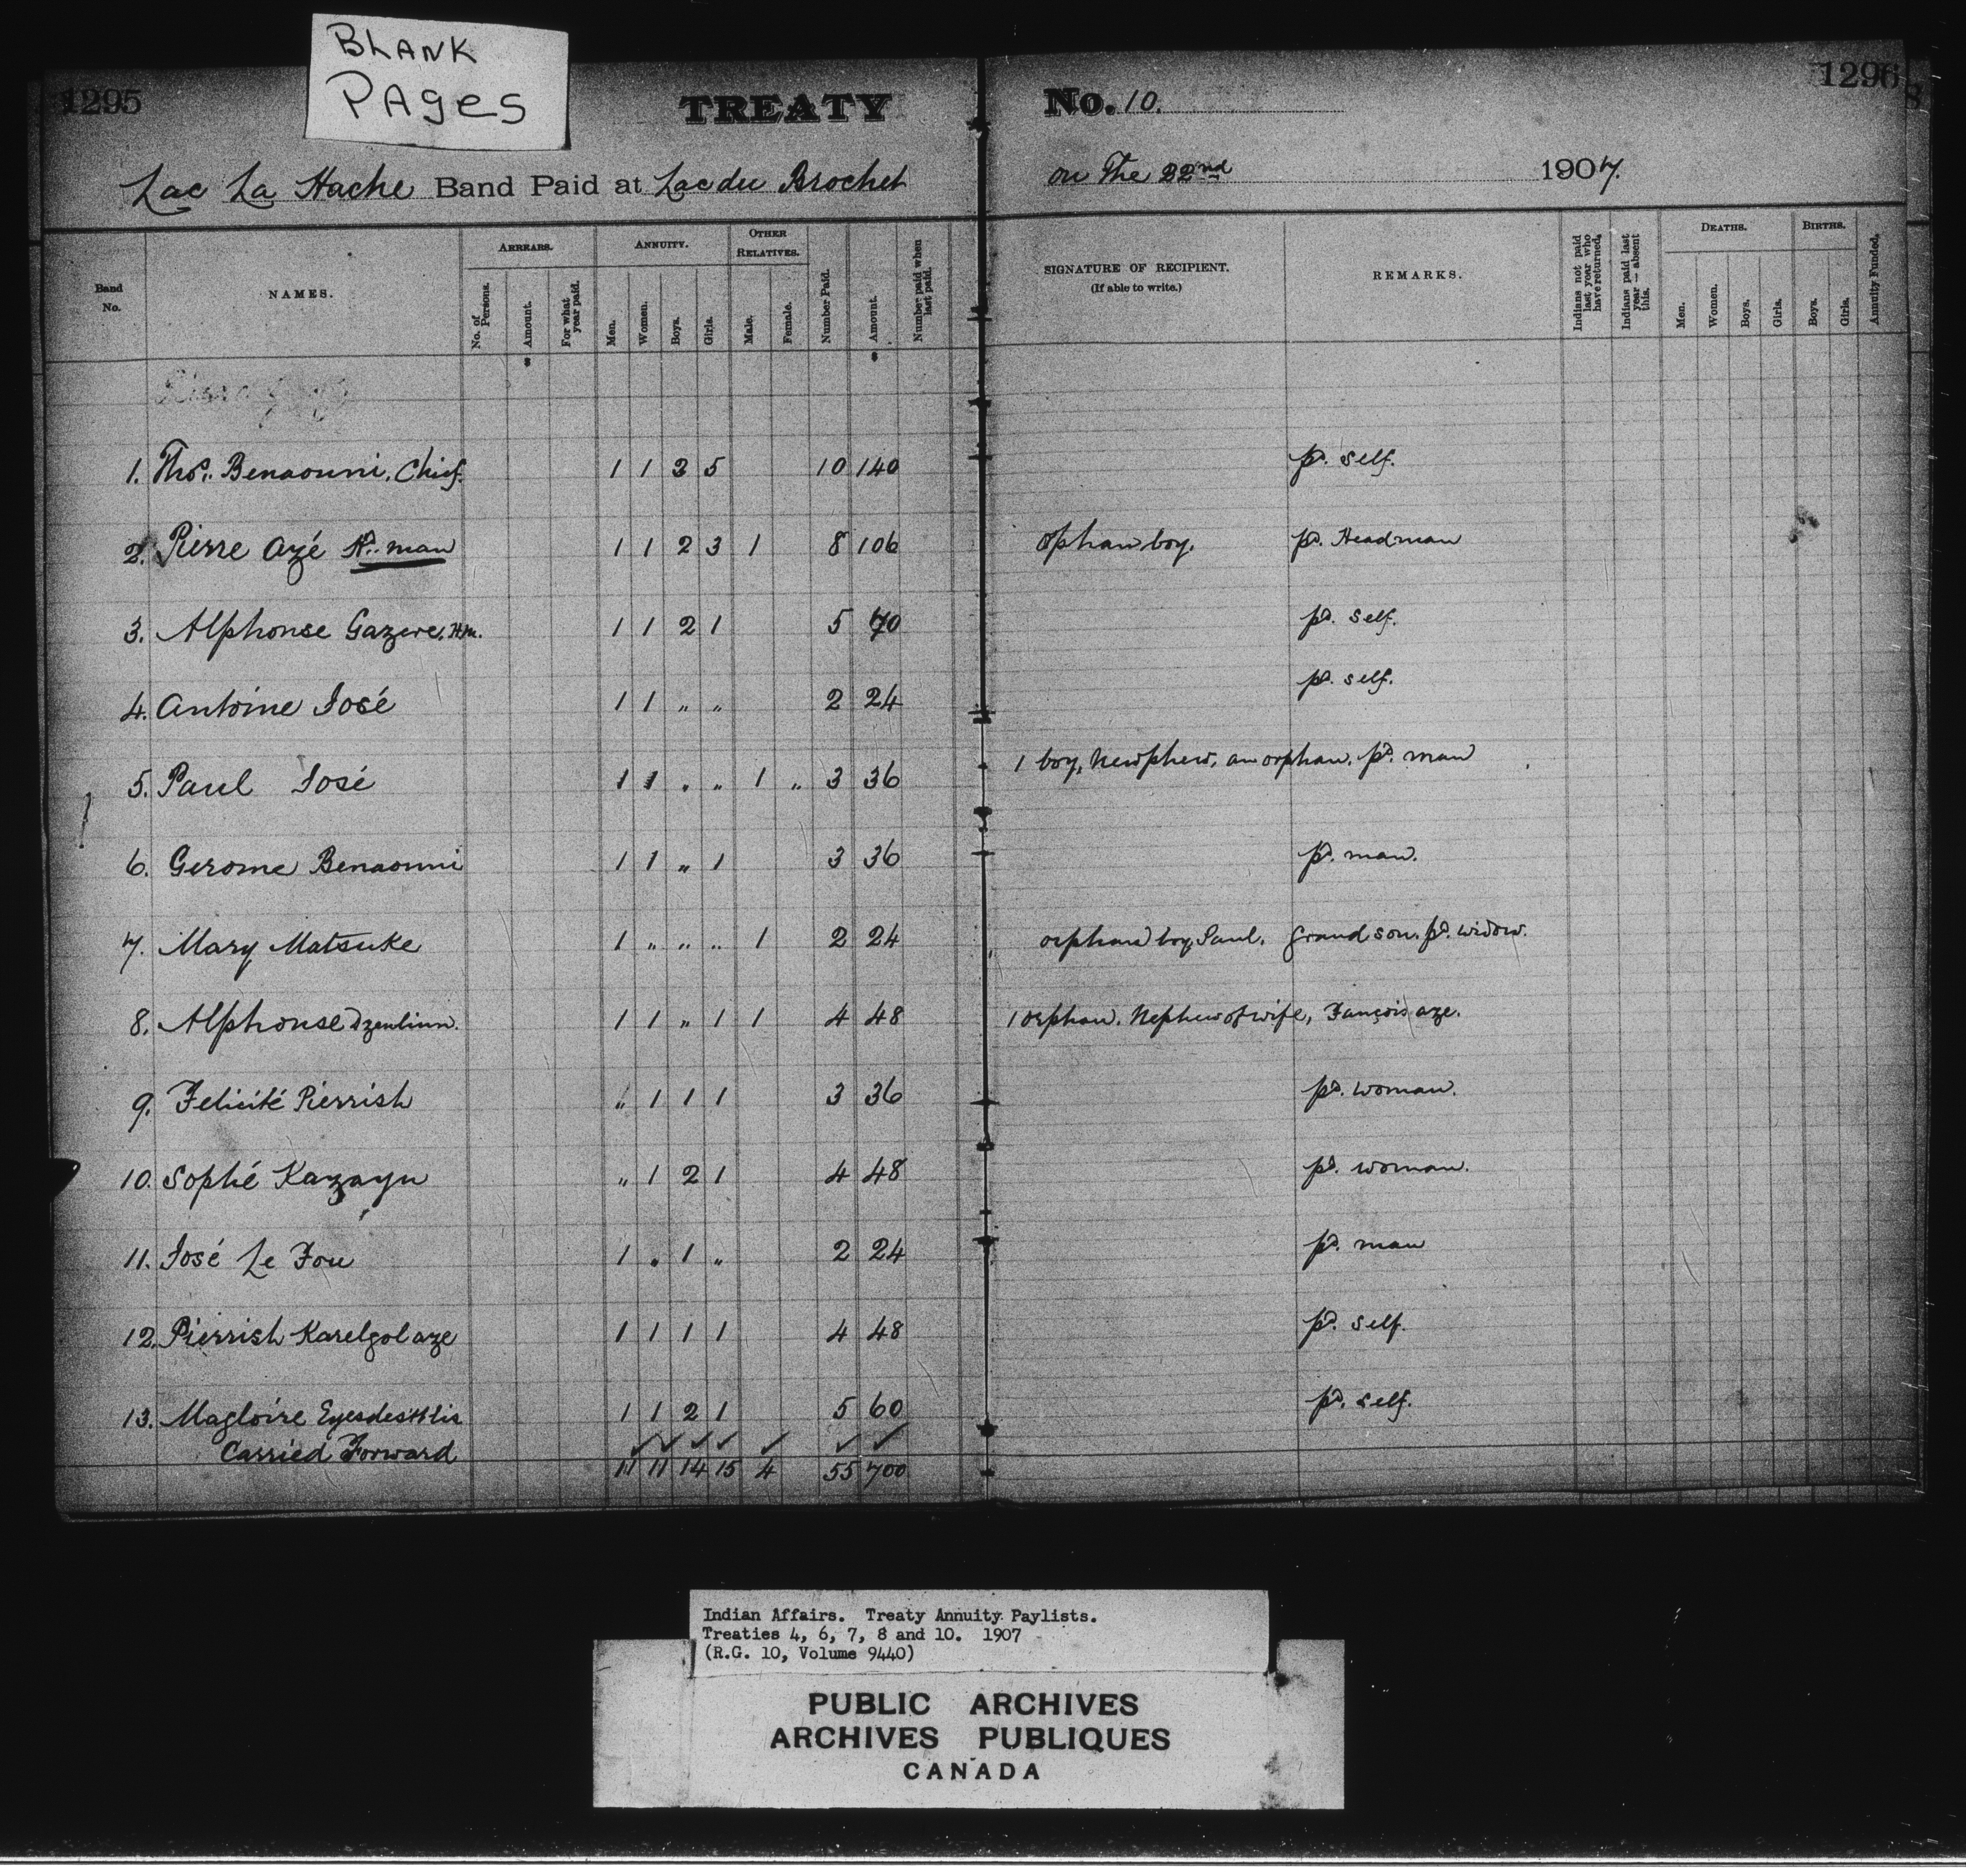 BLANK
PAGES
1295
1296
TREATY No. 10.
Lac La Hache Band Paid at Lac du Brochet on The 22nd 1907.
Band No.
NAMES.
ARREARS.
No. of Persons.
Amount.
For what year paid.
ANNUITY.
Men.
Women.
Boys.
Girls.
OTHER RELATIVES.
Male.
Female.
Number Paid.
Amount.
Number paid when last paid.
SIGNATURE OF RECIPIENT.
(If able to write.)
REMARKS.
Indians not paid last year who have returned.
Indians paid last year — absent this.
DEATHS.
Men.
Women.
Boys.
Girls.
BIRTHS.
Boys.
Girls.
Annuity Funded.
1. Thos. Benaouni, Chief. 1 1 3 5 10 140 pd. self.
2. Pierre Azé H. man 1 1 2 3 1 8 106 Ophan boy. pd. Headman
3. Alphonse Gazere, Hm. 1 1 2 1 5 70 pd. self.
4. Antoine José 1 1 " " 2 24 pd. self.
5. Paul José 1 1 " " 1 " 3 36 1 boy, Newphew, an orphan. pd. man
6. Gerome Benaouni 1 1 " 1 3 36 pd. man.
7. Mary Matsuke 1 " " " 1 2 24 orphan boy Paul. Grand son. pd. widow.
8. Alphonse 1 1 " 1 1 4 48 1 orphan. Nephew of wife, François aze.
9. Felicité Pierrish " 1 1 1 3 36 pd. woman.
10. Sophé Kazayu " 1 2 1 4 48 pd. woman.
11. José Le Fou 1 " 1 " 2 24 pd. man
12. Pierrish Karelgolaze 1 1 1 1 4 48 pd. self.
13. Magloire 1 1 2 1 5 60 pd. self.
Carried Forward 11 11 14 15 4 55 700
Indian Affairs. Treaty Annuity Paylists.
Treaties 4, 6, 7, 8 and 10. 1907
(R.G. 10, Volume 9440)
PUBLIC ARCHIVES
ARCHIVES PUBLIQUES
CANADA